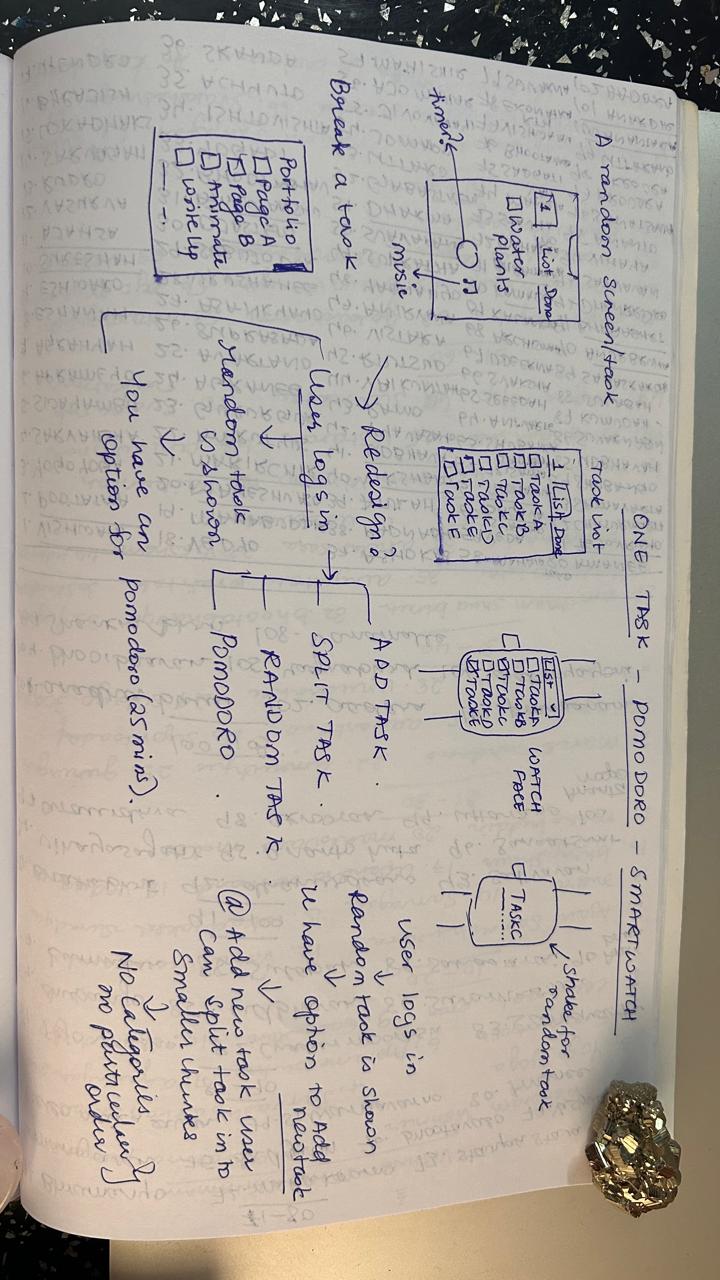 ONE TASK - POMODORO - SMARTWATCH
A random screen/task
1 List Done
Water
Plants
timer?
music
Task List
1 List Done
Task A
Task B
Task C
Task D
Task E
Task F
List
Task A
Task B
Task C
Task D
Task E
WATCH
FACE
shake for
random task
TASK C
Redesign?
Break a task
Portfolio
Page A
Page B
Animate
Write Up
User logs in
random task
is shown
You have an
option for pomodoro (25 mins).
ADD TASK .
SPLIT TASK .
RANDOM TASK .
POMODORO .
User logs in
Random task is shown
U have option to Add
new task
@ Add new task user
can split task in to
smaller chunks
No Categories
no particular
order